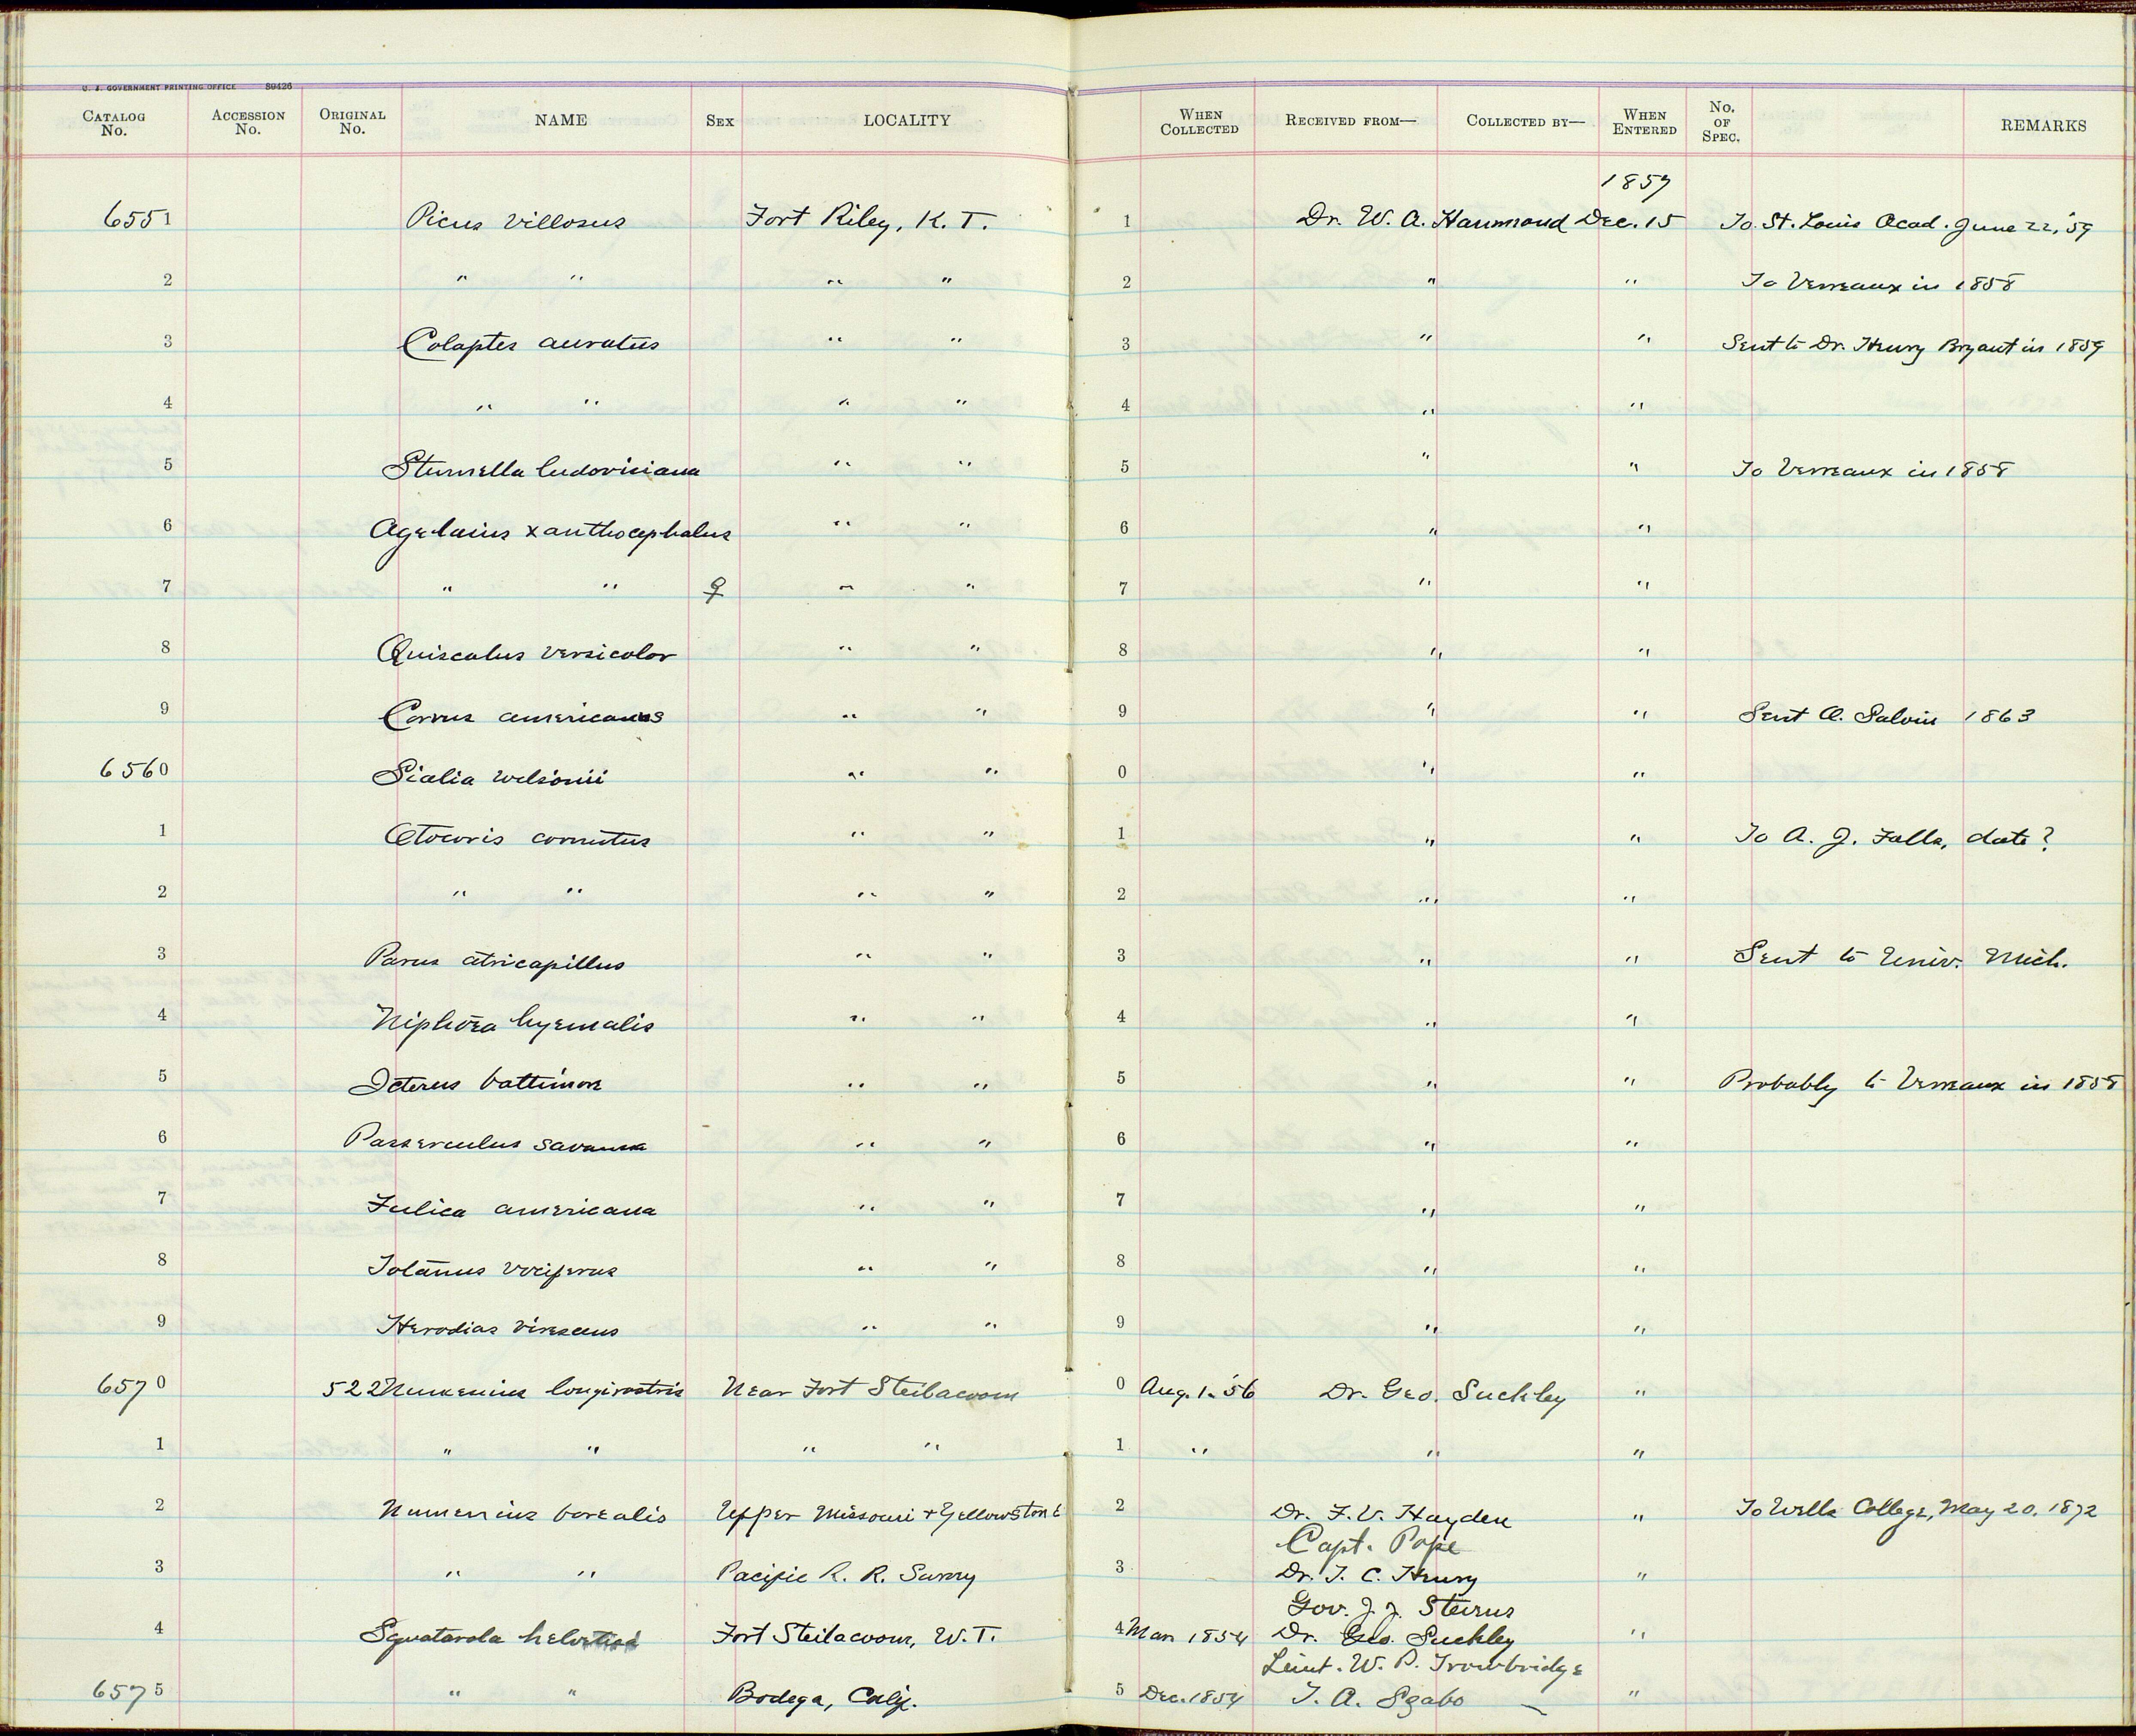 U. S. GOVERNMENT PRINTING OFFICE 89426
CATALOG No. ACCESSION No. ORIGINAL No. NAME SEX LOCALITY WHEN COLLECTED RECEIVED FROM— COLLECTED BY— WHEN ENTERED No. OF SPEC. REMARKS
1857
6551 Picus villosus Fort Riley, K. T. 1 Dr. W. A. Hammond Dec. 15 To St. Louis Acad. June 22, '59
2 " " " " 2 " " To Verreaux in 1858
3 Colaptes auratus " " 3 " " Sent to Dr. Henry Bryant in 1859
4 " " " " 4 " "
5 Sturnella ludoviciana " " 5 " " To Verreaux in 1858
6 Agelaius xanthocephalus " " 6 " "
7 " " ♀ " " 7 " "
8 Quiscalus versicolor " " 8 " "
9 Corvus americanus " " 9 " " Sent O. Salvin 1863
6560 Sialia wilsonii " " 0 " "
1 Otocoris cornutus " " 1 " " To A. J. Falls, date?
2 " " " " 2 " "
3 Parus atricapillus " " 3 " " Sent to Univ. Mich.
4 Niphoea hyemalis " " 4 " "
5 Icterus baltimore " " 5 " " Probably to Verreaux in 1858
6 Passerculus savanna " " 6 " "
7 Fulica americana " " 7 " "
8 Totanus vociferus " " 8 " "
9 Herodias virescens " " 9 " "
6570 522 Numenius longirostris Near Fort Steilacoom 0 Aug. 1. '56 Dr. Geo. Suckley "
1 " " " " 1 " " "
2 Numenius borealis Upper Missouri + Yellowstone 2 Dr. F. V. Hayden " To Wells College, May 20, 1872
Capt. Pope
3 " " Pacific R. R. Survey 3 Dr. T. C. Henry "
Gov. J. J. Stevens
4 Squatarola helvetica Fort Steilacoom, W. T. 4 Mar 1854 Dr. Geo. Suckley "
Lieut. W. P. Trowbridge
6575 " " Bodega, Calif. 5 Dec. 1854 T. A. Szabo "